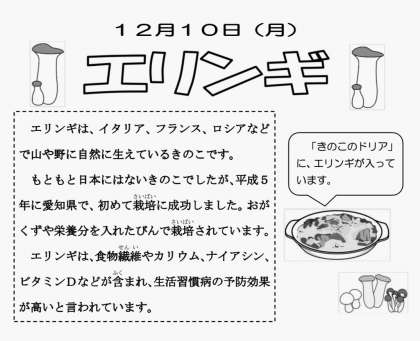 12月10日（月）
エリンギ
エリンギは、イタリア、フランス、ロシアなど
で山や野に自然に生えているきのこです。
もともと日本にはないきのこでしたが、平成5
年に愛知県で、初めて栽培に成功しました。おが
くずや栄養分を入れたびんで栽培されています。
エリンギは、食物繊維やカリウム、ナイアシン、
ビタミンDなどが含まれ、生活習慣病の予防効果
が高いと言われています。
「きのこのドリア」
に、エリンギが入って
います。